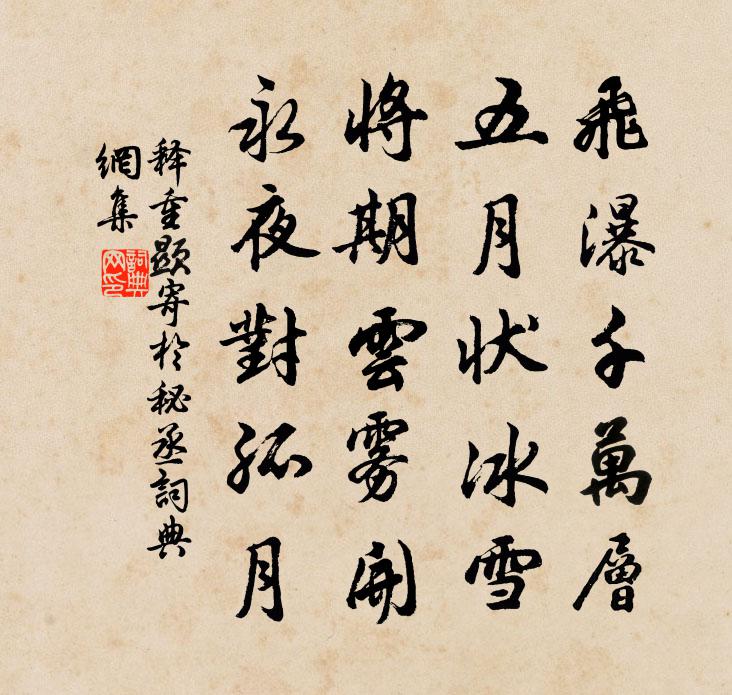 飛瀑千萬層
五月状冰雪
將期雲雾開
永夜對孤月
释重顯寄於秘丞詞典
網集
詞典
网印